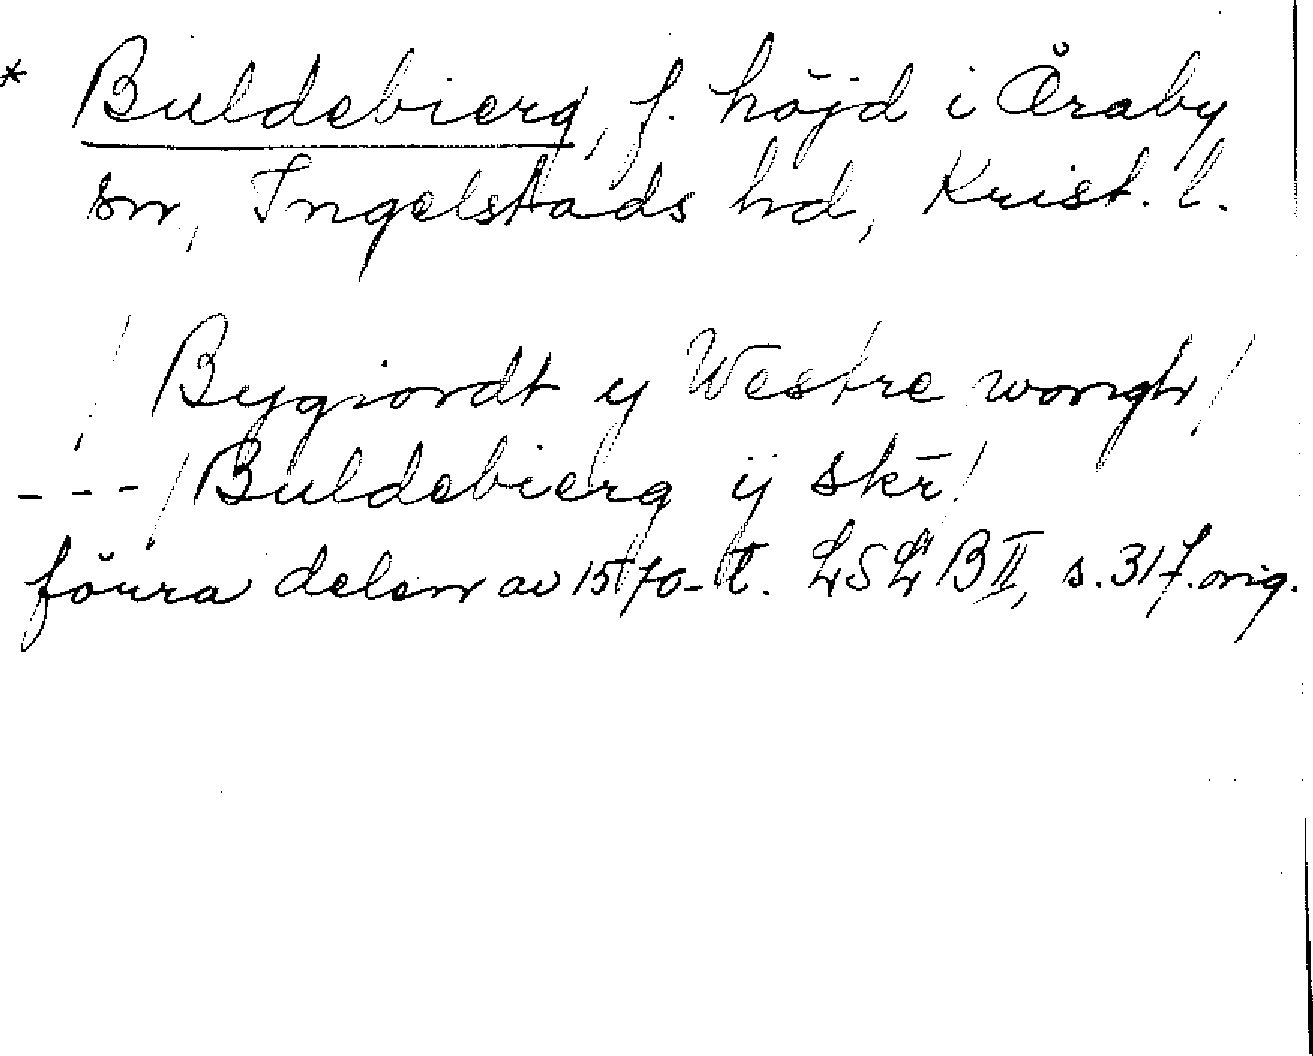 * Buldebierg, f. höjd i Åraby
sn, Ingelstads hd, Krist. l.
/ Bygiordt y Westre wongh /
--- / Buldebierg ij skr /
förra delen av 1570-t. LSLB II, s. 317. orig.